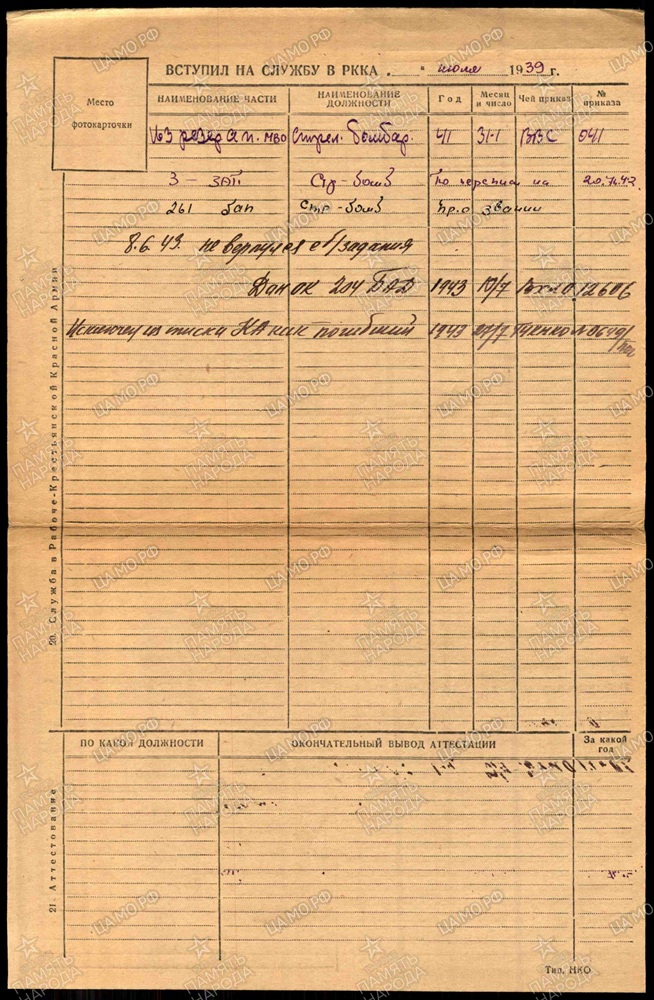 ВСТУПИЛ НА СЛУЖБУ В РККА „ “ июля 1939 г.
Место фотокарточки
НАИМЕНОВАНИЕ ЧАСТИ НАИМЕНОВАНИЕ ДОЛЖНОСТИ Год Месяц и число Чей приказ № приказа
163 резер МВО Стрел. бомбар. 41 31-1 ВВС 041
3 - ЗАП Стр-бомб 20.
261 бап Стр-бомб звании
8.6.43. не вернулся с б/задания
Дан ОК 204 БАД 1943 10/7 12606
Исключен из списка КА как погибший 1943
20. Служба в Рабоче-Крестьянской Красной Армии
ПО КАКОЙ ДОЛЖНОСТИ ОКОНЧАТЕЛЬНЫЙ ВЫВОД АТТЕСТАЦИИ За какой год
21 Аттестование
Тип. НКО
ЦАМО.РФ
ПАМЯТЬ НАРОДА